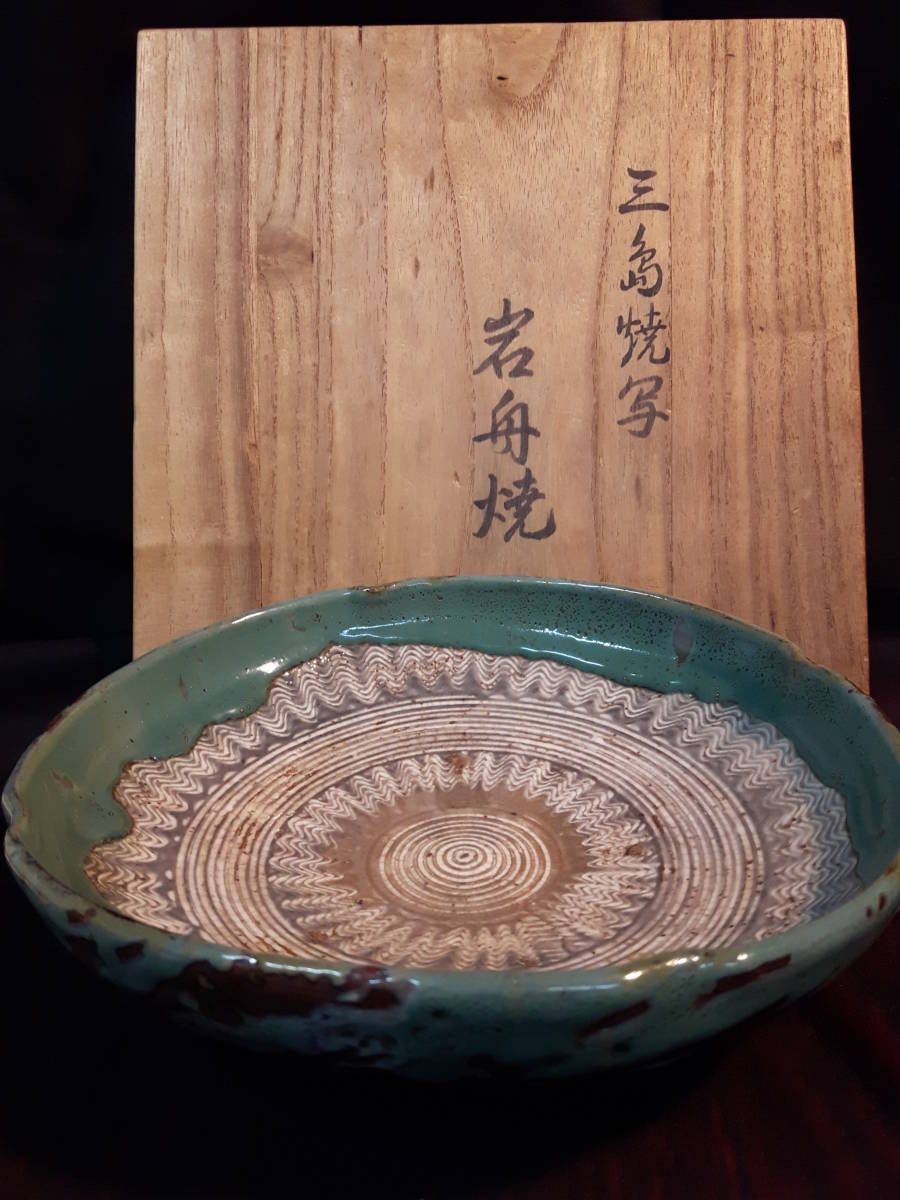 三島焼写
岩舟焼